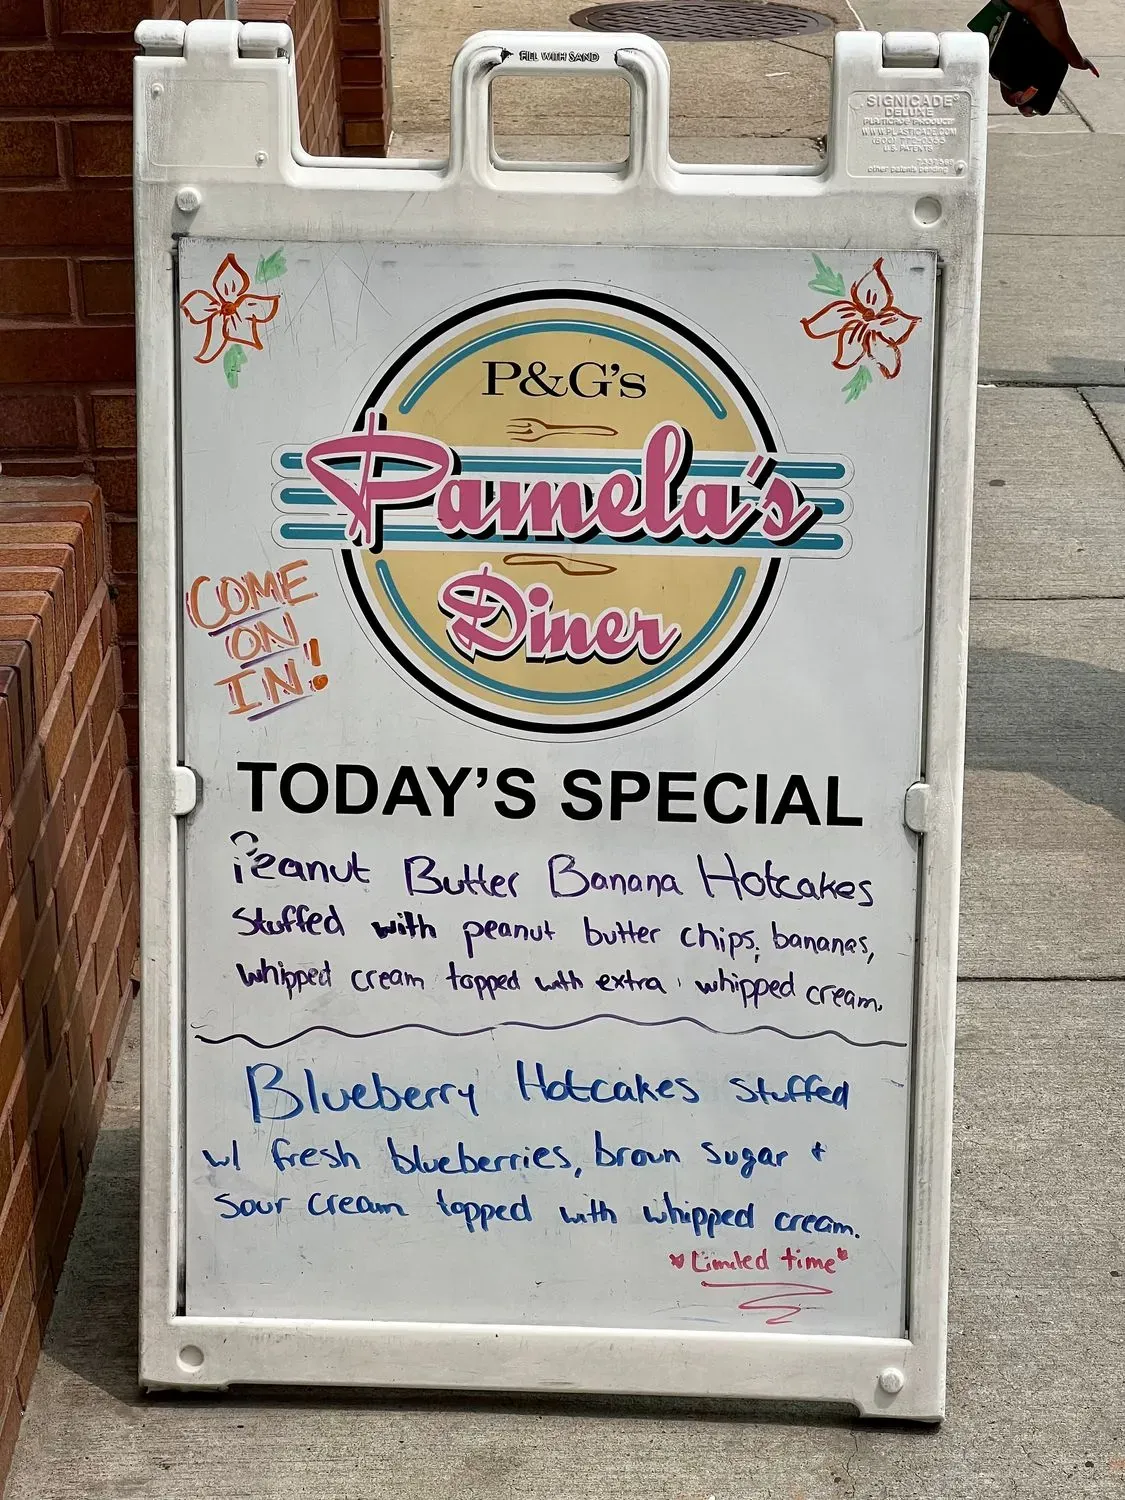 FILL WITH SAND
SIGNICADE®
DELUXE
PLASTICADE PRODUCTS
WWW.PLASTICADE.COM
U.S. PATENTS
other patents pending
P&G's
Pamela's
Diner
COME
ON
IN!
TODAY'S SPECIAL
Peanut Butter Banana Hotcakes
Stuffed with peanut butter chips, bananas,
whipped cream topped with extra whipped cream.
Blueberry Hotcakes stuffed
w/ fresh blueberries, brown sugar +
sour cream topped with whipped cream.
Limited time